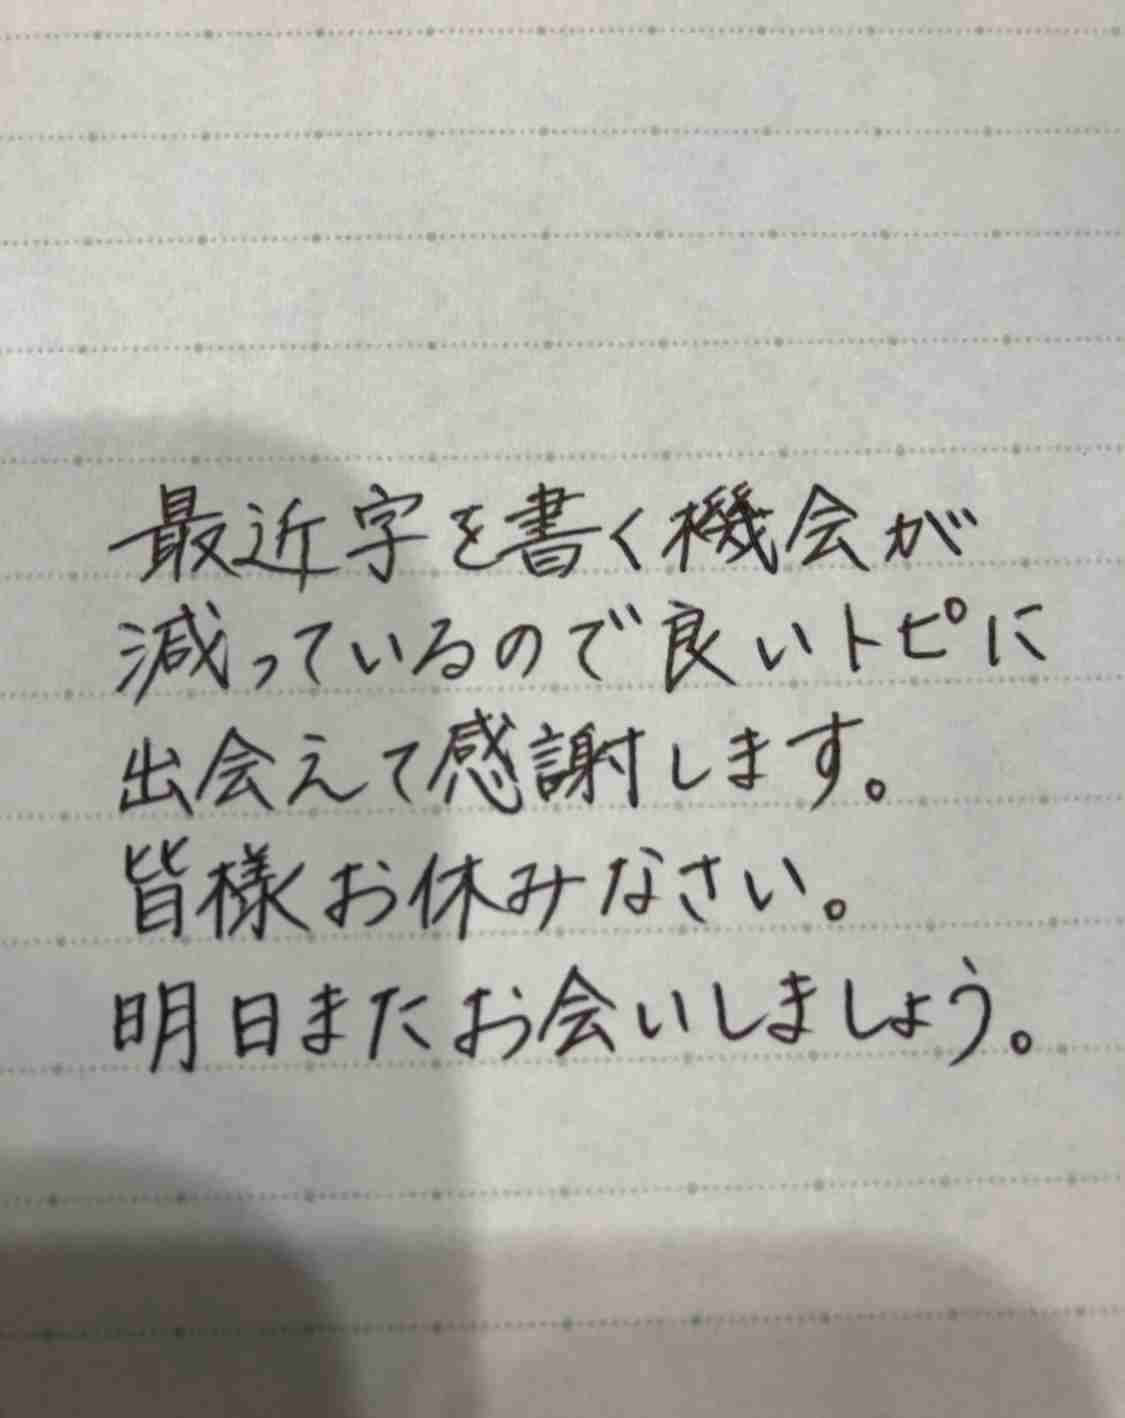 最近字を書く機会が
減っているので良いトピに
出会えて感謝します。
皆様お休みなさい。
明日またお会いしましょう。